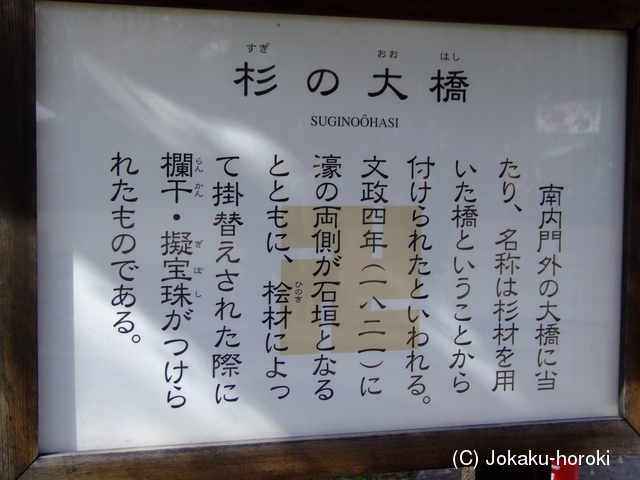 杉の大橋
すぎ おお はし
SUGINOŌHASI
南内門外の大橋に当
たり、名称は杉材を用
いた橋ということから
付けられたといわれる。
文政四年(一八二一)に
濠の両側が石垣となる
とともに、桧材によっ
ひのき
て掛替えされた際に
欄干・擬宝珠がつけら
らんかん ぎぼし
れたものである。
(C) Jokaku-horoki